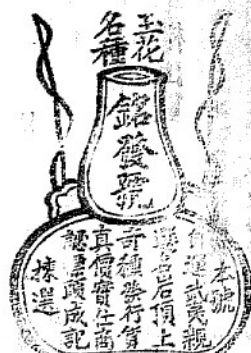 玉花
名種
銘發號
本號
自選武夷親
選名岩頂上
奇種發行貨
真價實仕商
認票頭成記
揀選